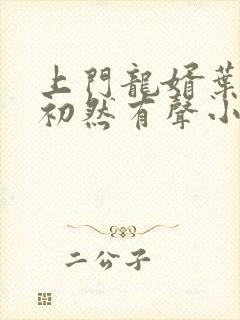 上門龍婿葉
初然有聲小
二公子